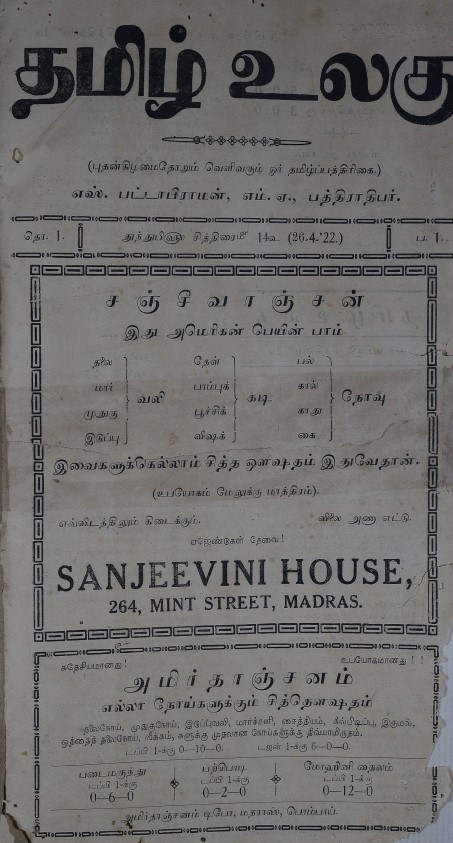 தமிழ் உலகு
(புதன்கிழமைதோறும் வெளிவரும் ஓர் தமிழ்ப்பத்திரிகை.)
எஸ். பட்டாபிராமன், எம். ஏ., பத்திராதிபர்.
தொ. 1. துந்துபிஹு சித்திரைமீ 14உ (26.4-'22.) ப. 1.
சஞ்சீவாஞ்சன்
இது அமெரிகன் பெயின் பாம்
தலை
மார்
முதுகு
இடுப்பு
வலி
தேள்
பாம்புக்
பூச்சிக்
விஷக்
கடி
பல்
கால்
காது
கை
நோவு
இவைகளுக்கெல்லாம் சித்த ஔஷதம் இதுவேதான்.
(உபயோகம் மேலுக்கு மாத்திரம்).
எவ்விடத்திலும் கிடைக்கும். விலை அணா எட்டு.
ஏஜெண்டுகள் தேவை!
SANJEEVINI HOUSE,
264, MINT STREET, MADRAS.
சுதேசியமானது! உபயோகமானது!!
அமிர்தாஞ்சனம்
எல்லா நோய்களுக்கும் சித்தௌஷதம்
தலைநோய், முதுகுநோய், இடுப்புவலி, மார்ச்சளி, சைத்தியம், கீல்பிடிப்பு, இருமல்,
ஒத்தைத் தலைநோய், வீக்கம், சுளுக்கு முதலான நோய்களுக்கு திவ்யாமிருதம்.
டப்பி 1-க்கு 0—10—0. டஜன் 1-க்கு 6—0—0.
படைமருந்து
டப்பி 1-க்கு
0—6—0
பற்பொடி
டப்பி 1-க்கு
0—2—0
மோஹினி தைலம்
டப்பி 1-க்கு
0—12—0
அமிர்தாஞ்சனம் டிபோ, மதராஸ், பொம்பாய்.